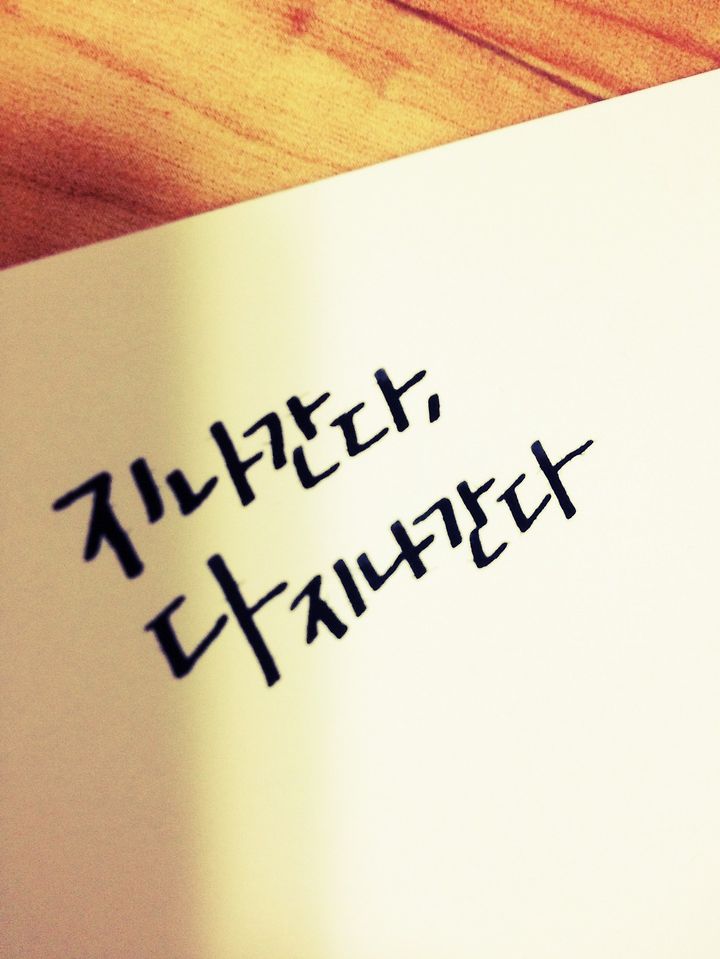 지나간다,
다 지나간다